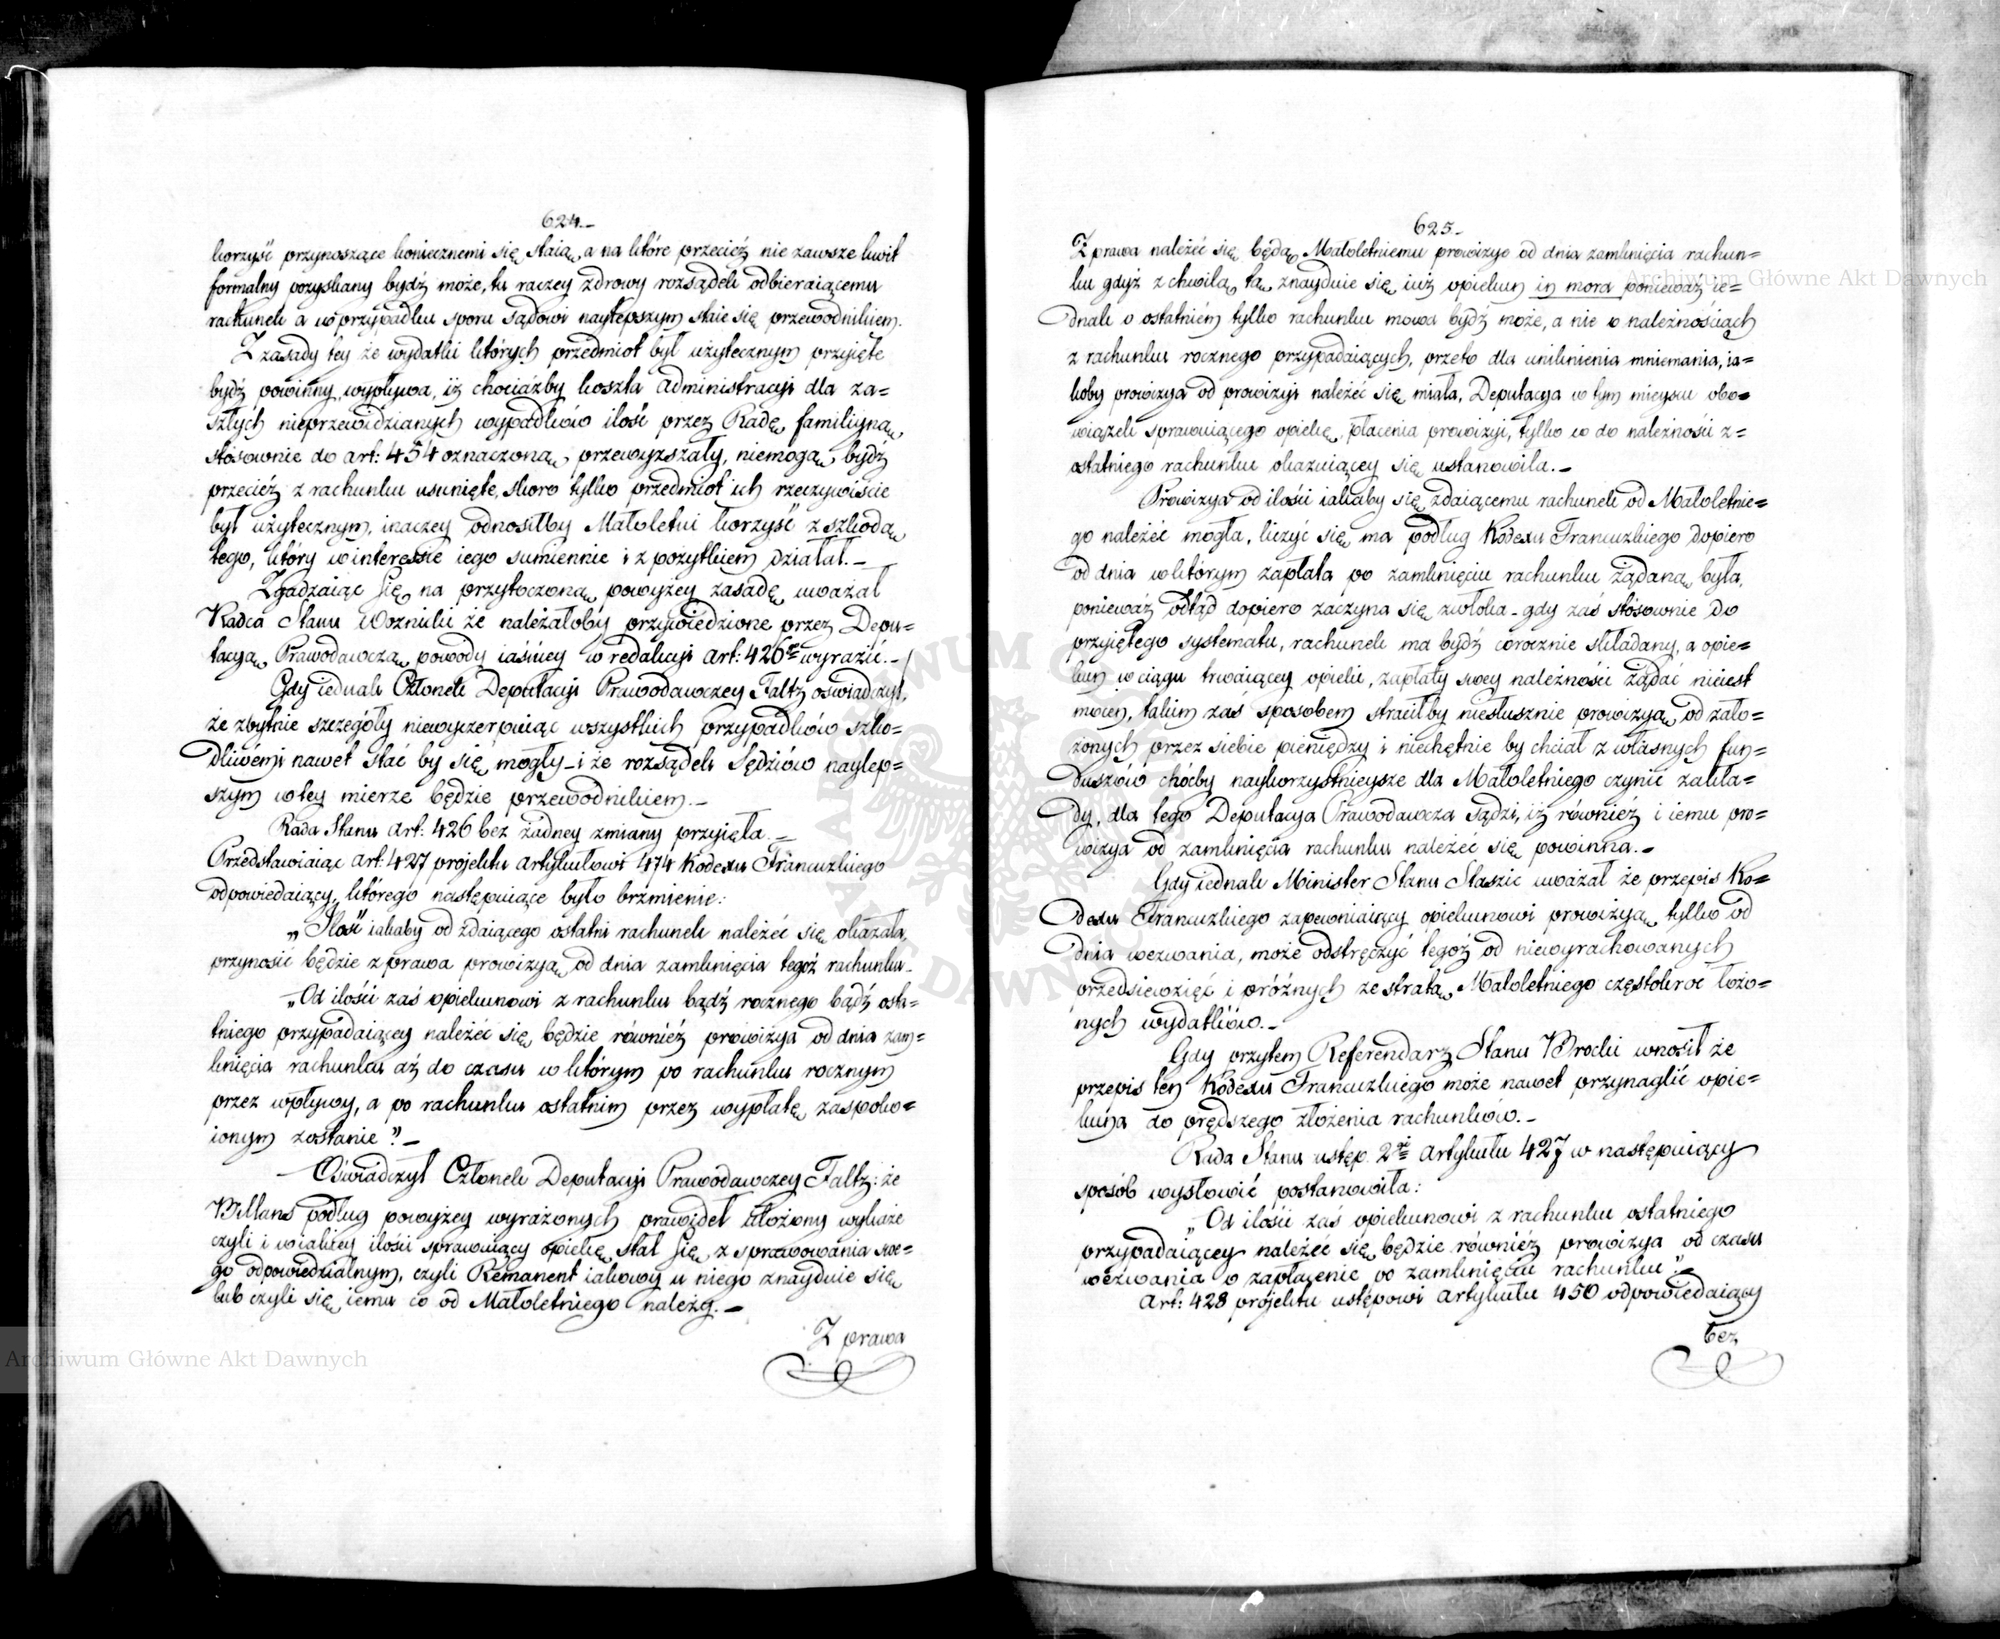 624.
korzyść przynoszące koniecznemi się staią, a na które przecież nie zawsze kwit
formalny pozyskany bydź może, tu raczey zdrowy rozsądek odbieraiącemu
rachunek a w przypadku sporu Sądowi naylepszym staie się przewodnikiem.
Z zasady tey że wydatki których przedmiot był użytecznym przyięte
bydź powinny, wypływa, iż chociażby koszta administracyi dla za=
szłych nieprzewidzianych wypadków ilość przez Radę familiyną,
stosownie do art: 454 oznaczoną, przewyższały, niemogą bydź
przecież z rachunku usunięte, skoro tylko przedmiot ich rzeczywiście
był użytecznym, inaczey odnosiłby Małoletni korzyść z szkodą
tego, który w interessie iego sumiennie i z pożytkiem działał. –
Zgadzaiąc się na przytoczoną powyżey zasadę uważał
Radca Stanu Woznicki że należałoby przywiedzione przez Depu=
tacyą Prawodawczą powody iaśniey w redakcyi art: 426go wyrazić. –
Gdy iednak Członek Deputacyi Prawodawczey Faltz oświadczył,
że zbytnie szczegóły niewyczerpuiąc wszystkich przypadków szko=
dliwemi nawet stać by się mogły – i że rozsądek Sędziów naylep=
szym w tey mierze będzie przewodnikiem. –
Rada Stanu art: 426 bez żadney zmiany przyięła. –
Przedstawiaiąc art: 427 projektu artykułowi 474 Kodexu Francuzkiego
odpowiedaiący, którego następuiące było brzmienie:
„Ilość iakaby od zdaiącego ostatni rachunek należeć się okazała,
przynosić będzie z prawa prowizyą od dnia zamknięcia tegoż rachunku.
„Od ilości zaś opiekunowi z rachunku bądź rocznego bądź osta=
tniego przypadaiącey należeć się będzie również prowizya od dnia zam=
knięcia rachunku aż do czasu w którym po rachunku rocznym
przez wpływy, a po rachunku ostatnim przez wypłatę zaspoko=
ionym zostanie”. –
Oświadczył Członek Deputacyi Prawodawczey Faltz: że
Billans podług powyżey wyrażonych prawideł ułożony wykaże
czyli i w iakiey ilości sprawuiący opiekę stał się z sprawowania swe=
go odpowiedzialnym, czyli Remanent iakowy u niego znayduie się
lub czyli się iemu co od Małoletniego należy. –
Z prawa
625.
Z prawa należeć się będą Małoletniemu prowizye od dnia zamknięcia rachun=
ku gdyż z chwilą tą znayduie się iuż opiekun in mora ponieważ ie=
dnak o ostatnim tylko rachunku mowa bydź może, a nie o należnościach
z rachunku rocznego przypadaiących, przeto dla uniknienia mniemania, ia=
koby prowizya od prowizyi należeć się miała, Deputacya w tym mieyscu obo=
wiązek sprawuiącego opiekę, płacenia prowizyi, tylko co do należności z=
ostatniego rachunku okazuiącey się ustanowiła. –
Prowizya od ilości iakaby się zdaiącemu rachunek od Małoletnie=
go należeć mogła, liczyć się ma podług Kodexu Francuzkiego dopiero
od dnia w którym zapłata po zamknięciu rachunku żądaną była,
ponieważ odtąd dopiero zaczyna się zwłoka – gdy zaś stosownie do
przyiętego systematu, rachunek ma bydź corocznie składany, a opie=
kun w ciągu trwaiącey opieki, zapłaty swey należności żądać nieiest
mocen, takim zaś sposobem straciłby niesłusznie prowizyą od zało=
żonych przez siebie pieniędzy i niechętnie by chciał z własnych fun=
duszów choćby naykorzystnieysze dla Małoletniego czynić zakła=
dy, dla tego Deputacya Prawodawcza sądzi, iż również i iemu pro=
wizya od zamknięcia rachunku należeć się powinna. –
Gdy iednak Minister Stanu Staszic uważał że przepis Ko=
dexu Francuzkiego zapewniaiący opiekunowi prowizyą tylko od
dnia wezwania, może odstręczyć tegoż od niewyrachowanych
przedsięwzięć i próżnych ze stratą Małoletniego częstokroć łożo=
nych wydatków. –
Gdy przytem Referendarz Stanu Brocki wnosił że
przepis ten Kodexu Francuzkiego może nawet przynaglić opie=
kuna do prędszego złożenia rachunków. –
Rada Stanu ustęp 2gi artykułu 427 w następuiący
sposób wysłowić postanowiła:
„Od ilości zaś opiekunowi z rachunku ostatniego
przypadaiącey należeć się będzie również prowizya od czasu
wezwania o zapłacenie po zamknięciu rachunku”. –
Art: 428 projektu ustępowi artykułu 450 odpowiedaiący
bez
Archiwum Główne Akt Dawnych
Archiwum Główne Akt Dawnych
ARCHIWUM GŁÓWNE AKT DAWNYCH